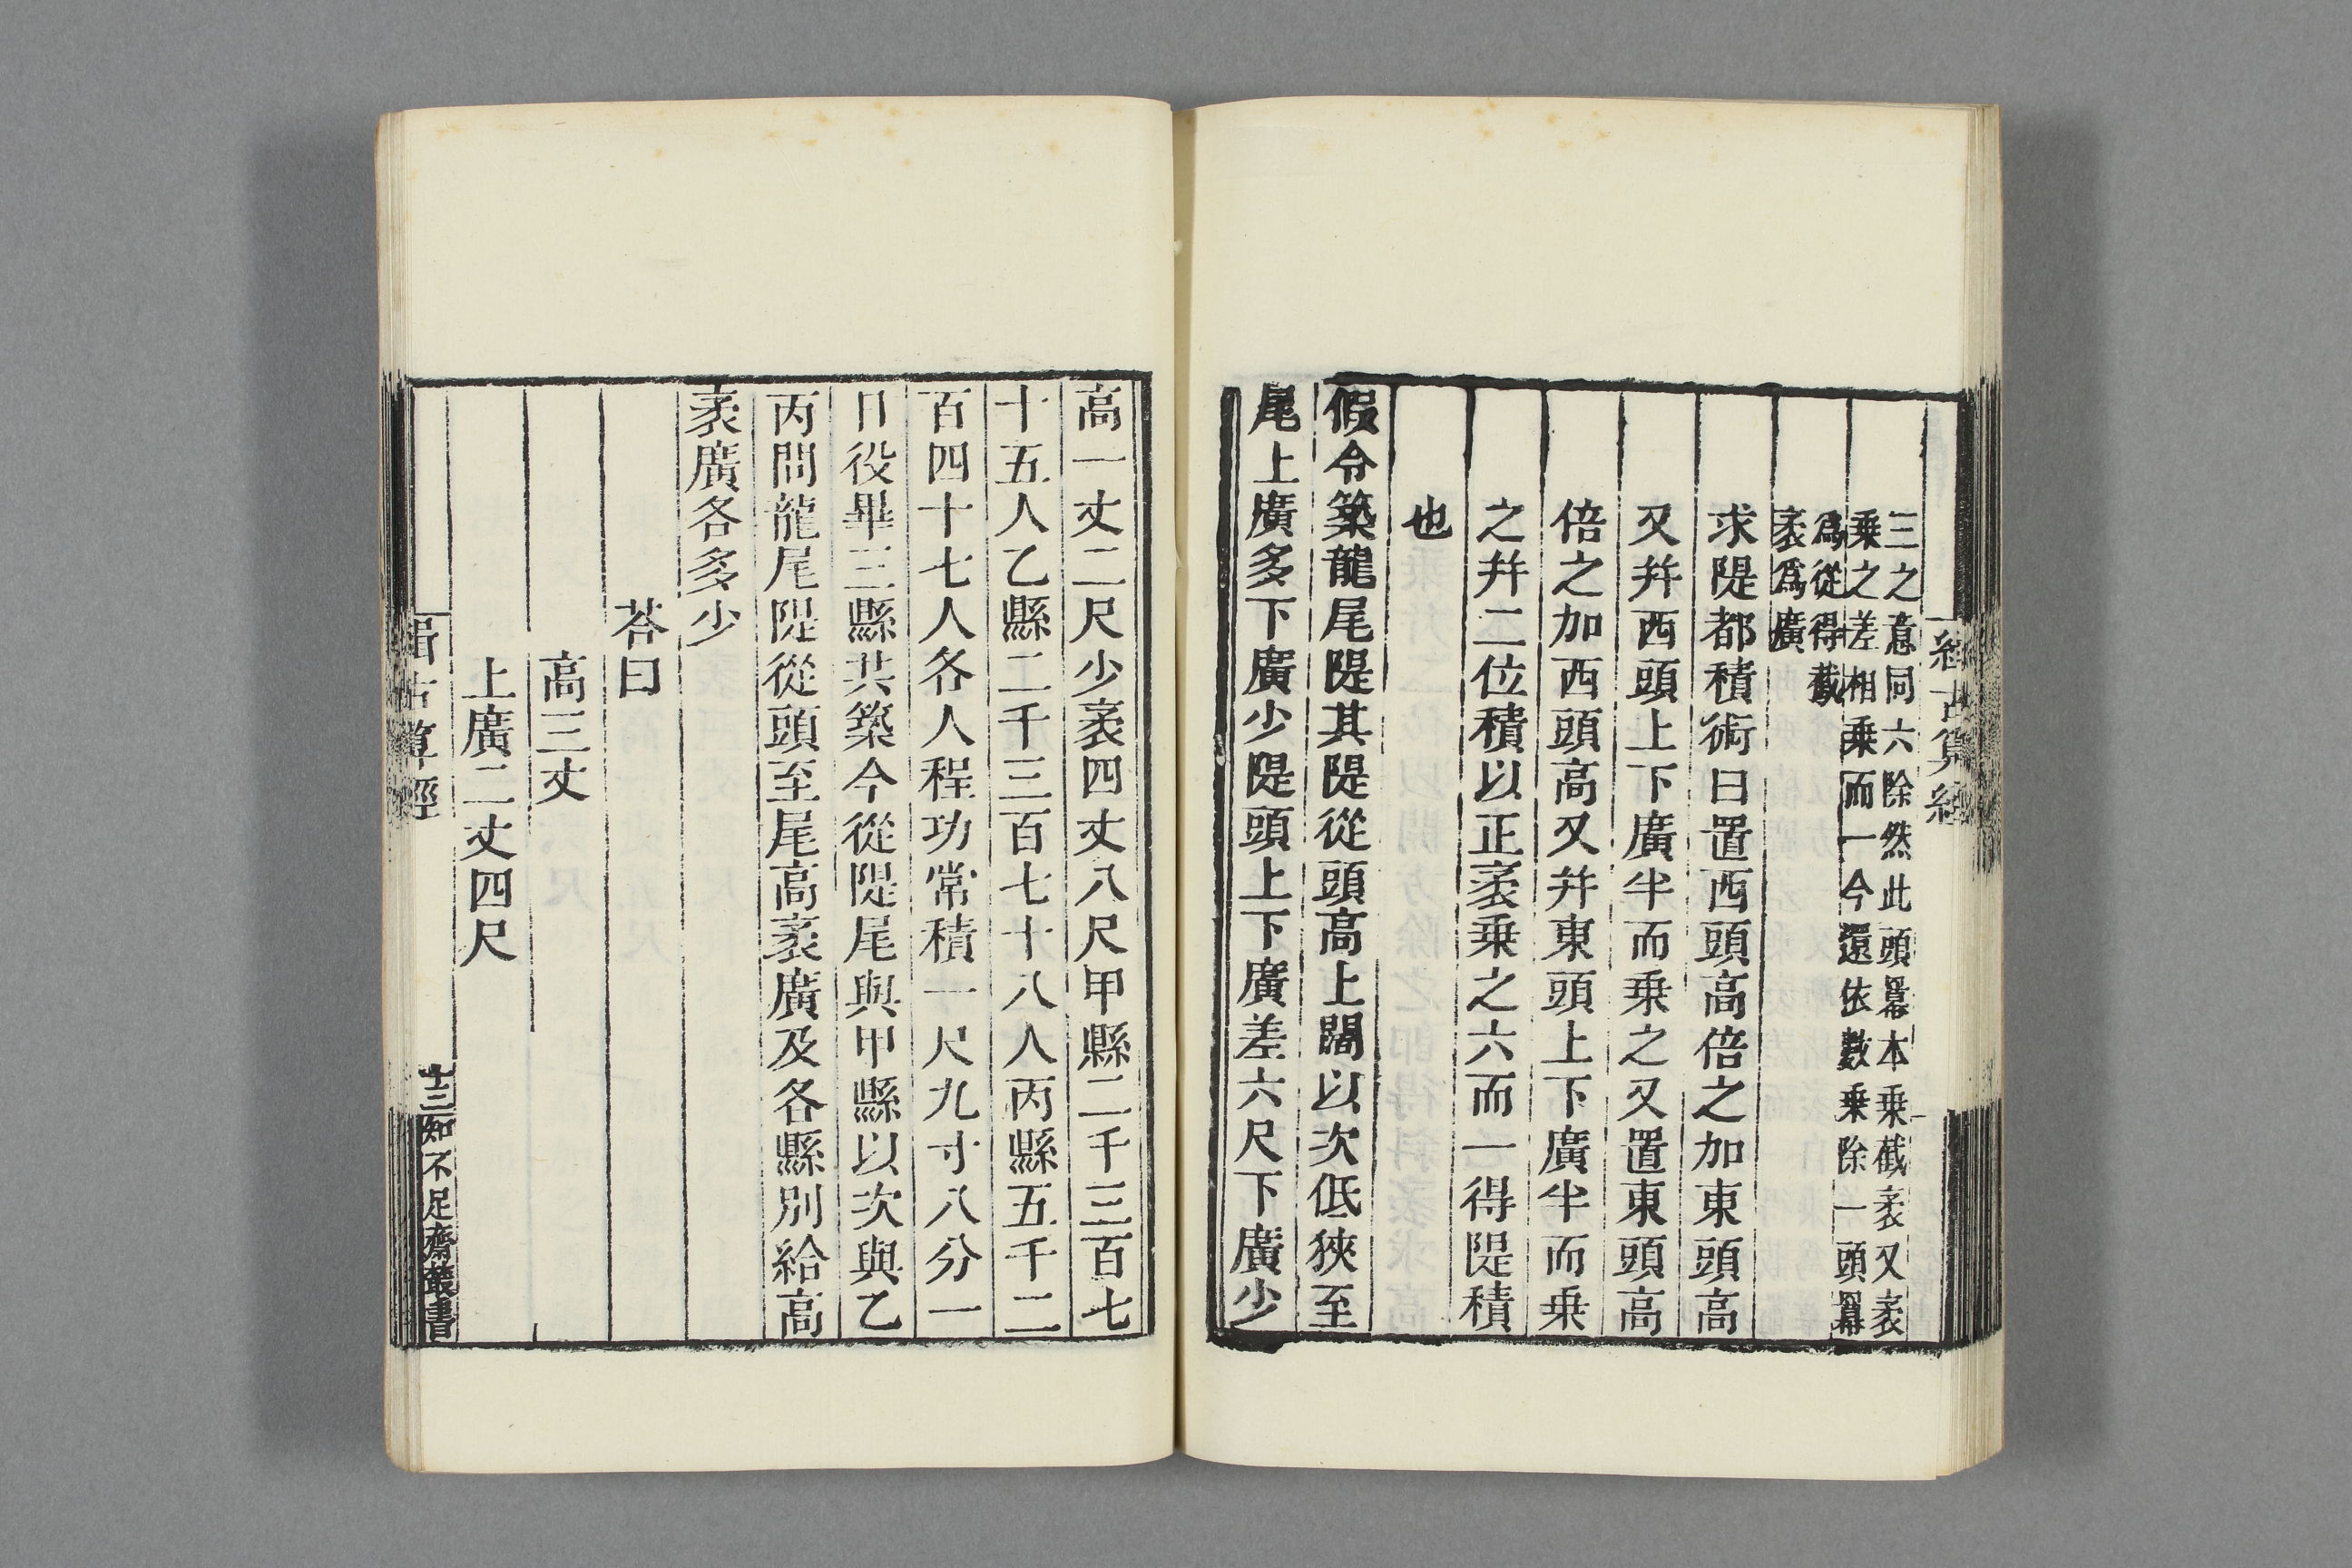 緝古算經
三之意同六除然此頭羃本乗截袤又袤
乗之差相乗而一今還依數乗除一頭羃
爲從得截
袤爲廣
求隄都積術曰置西頭高倍之加東頭高
又并西頭上下廣半而乗之又置東頭高
倍之加西頭高又并東頭上下廣半而乗
之并二位積以正袤乗之六而一得隄積
也
假令築龍尾隄其隄從頭高上闊以次低狹至
尾上廣多下廣少隄頭上下廣差六尺下廣少
高一丈二尺少袤四丈八尺甲縣二千三百七
十五人乙縣二千三百七十八人丙縣五千二
百四十七人各人程功常積一尺九寸八分一
日役畢三縣共築今從隄尾與甲縣以次與乙
丙問龍尾隄從頭至尾高袤廣及各縣別給高
袤廣各多少
荅曰
高三丈
上廣二丈四尺
緝古算經
十三
知不足齋叢書